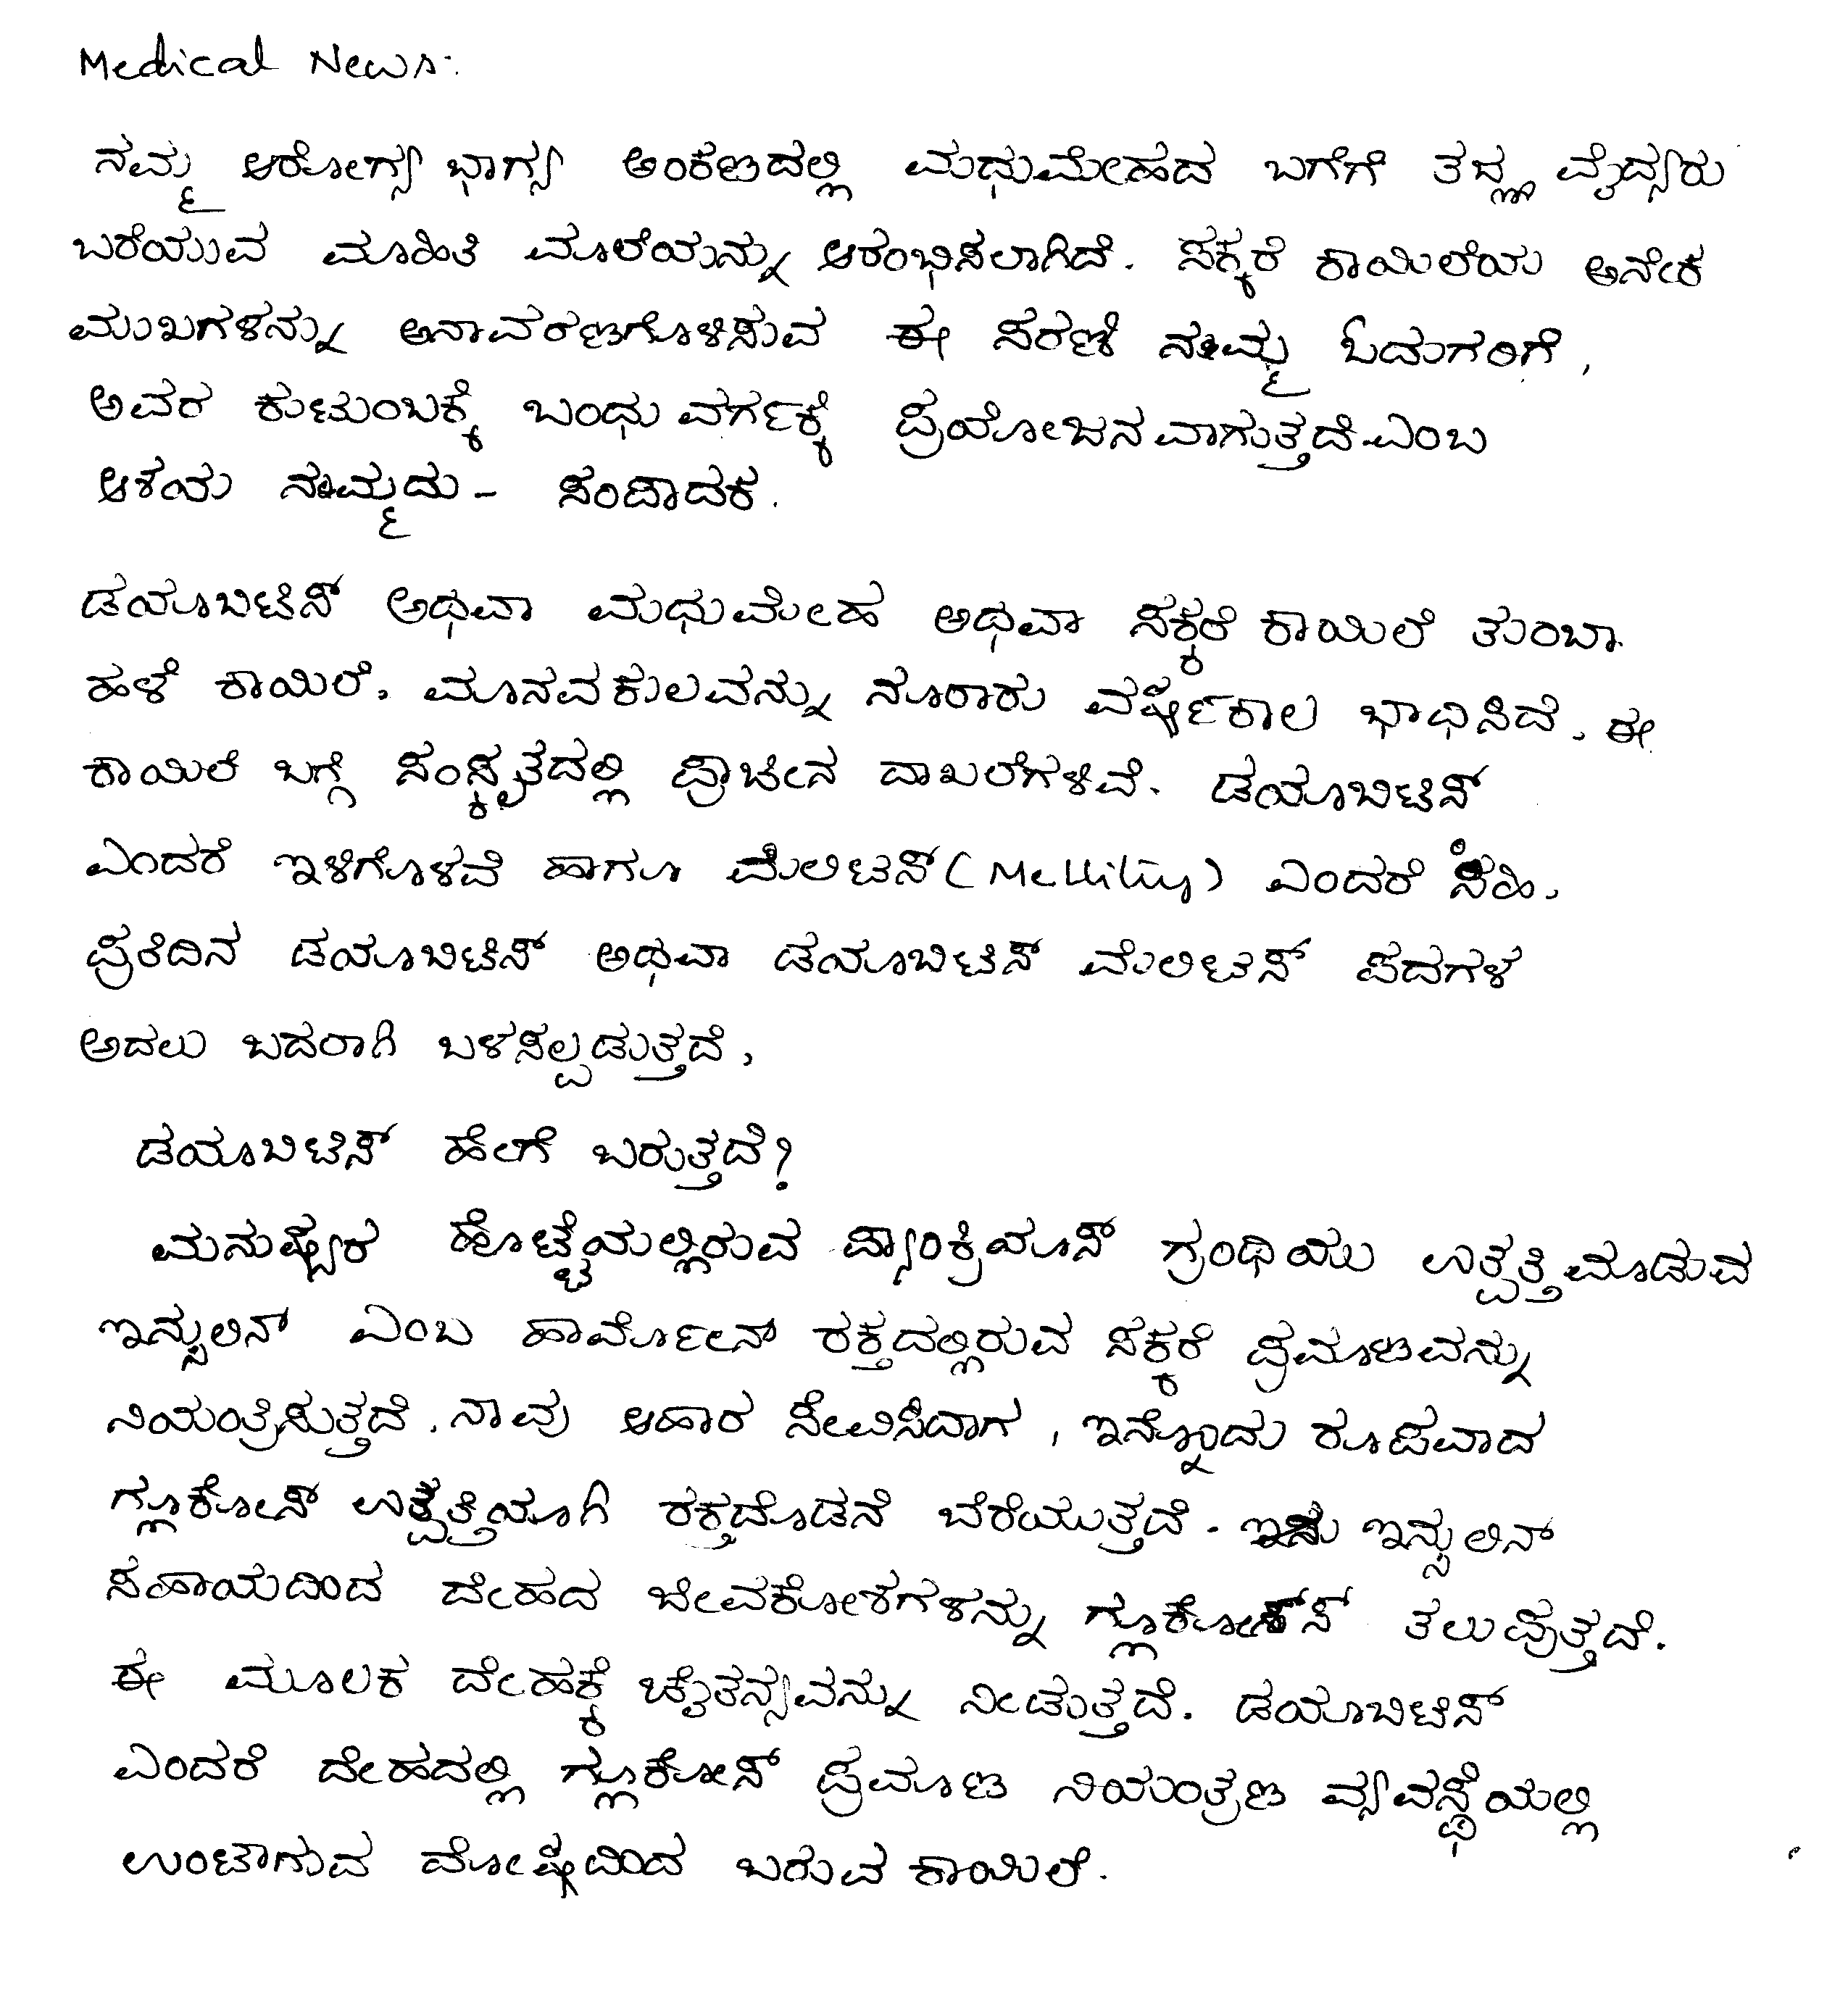 Medical News:
ನಮ್ಮ ಆರೋಗ್ಯ ಭಾಗ್ಯ ಅಂಕಣದಲ್ಲಿ ಮಧುಮೇಹದ ಬಗೆಗೆ ತಜ್ಞ ವೈದ್ಯರು
ಬರೆಯುವ ಮಾಹಿತಿ ಮಾಲೆಯನ್ನು ಆರಂಭಿಸಲಾಗಿದೆ. ಸಕ್ಕರೆ ಕಾಯಿಲೆಯ ಅನೇಕ
ಮುಖಗಳನ್ನು ಅನಾವರಣಗೊಳಿಸುವ ಈ ಸರಣಿ ನಮ್ಮ ಓದುಗರಿಗೆ,
ಅವರ ಕುಟುಂಬಕ್ಕೆ ಬಂಧು ವರ್ಗಕ್ಕೆ ಪ್ರಯೋಜನವಾಗುತ್ತದೆ ಎಂಬ
ಆಶಯ ನಮ್ಮದು - ಸಂಪಾದಕ.
ಡಯಾಬಿಟಿಸ್ ಅಥವಾ ಮಧುಮೇಹ ಅಥವಾ ಸಕ್ಕರೆ ಕಾಯಿಲೆ ತುಂಬಾ
ಹಳೆ ಕಾಯಿಲೆ. ಮಾನವಕುಲವನ್ನು ನೂರಾರು ವರ್ಷಕಾಲ ಭಾಧಿಸಿದೆ. ಈ
ಕಾಯಿಲೆ ಬಗ್ಗೆ ಸಂಸ್ಕೃತದಲ್ಲಿ ಪ್ರಾಚೀನ ದಾಖಲೆಗಳಿವೆ. ಡಯಾಬಿಟಿಸ್
ಎಂದರೆ ಇಳಿಗೊಳವೆ ಹಾಗೂ ಮೆಲಿಟಸ್ (Mellitus) ಎಂದರೆ ಸಿಹಿ.
ಪ್ರತಿದಿನ ಡಯಾಬಿಟಿಸ್ ಅಥವಾ ಡಯಾಬಿಟಿಸ್ ಮೆಲಿಟಸ್ ಪದಗಳ
ಅದಲು ಬದಲಾಗಿ ಬಳಸಲ್ಪಡುತ್ತದೆ,
ಡಯಾಬಿಟಿಸ್ ಹೇಗೆ ಬರುತ್ತದೆ?
ಮನುಷ್ಯರ ಹೊಟ್ಟೆಯಲ್ಲಿರುವ ಪ್ಯಾಂಕ್ರಿಯಾಸ್ ಗ್ರಂಥಿಯು ಉತ್ಪತ್ತಿಮಾಡುವ
ಇನ್ಸುಲಿನ್ ಎಂಬ ಹಾರ್ಮೋನ್ ರಕ್ತದಲ್ಲಿರುವ ಸಕ್ಕರೆ ಪ್ರಮಾಣವನ್ನು
ನಿಯಂತ್ರಿಸುತ್ತದೆ. ನಾವು ಆಹಾರ ಸೇವಿಸಿದಾಗ, ಇನ್ನೊಂದು ರೂಪವಾದ
ಗ್ಲೂಕೋಸ್ ಉತ್ಪತ್ತಿಯಾಗಿ ರಕ್ತದೊಡನೆ ಬೆರೆಯುತ್ತದೆ. ಇದು ಇನ್ಸುಲಿನ್
ಸಹಾಯದಿಂದ ದೇಹದ ಜೀವಕೋಶಗಳನ್ನು ಗ್ಲೂಕೋಸ್ ತಲುಪುತ್ತದೆ.
ಈ ಮೂಲಕ ದೇಹಕ್ಕೆ ಚೈತನ್ಯವನ್ನು ನೀಡುತ್ತದೆ. ಡಯಾಬಿಟಿಸ್
ಎಂದರೆ ದೇಹದಲ್ಲಿ ಗ್ಲೂಕೋಸ್ ಪ್ರಮಾಣ ನಿಯಂತ್ರಣ ವ್ಯವಸ್ಥೆಯಲ್ಲಿ
ಉಂಟಾಗುವ ದೋಷದಿಂದ ಬರುವ ಕಾಯಿಲೆ.